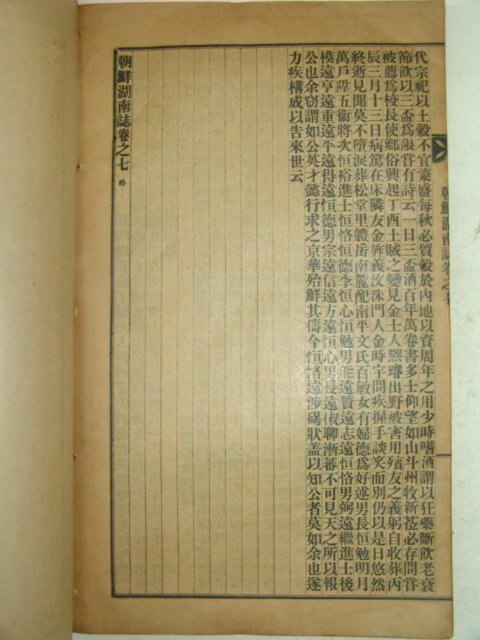 代宗祀以土穀不宜粢盛每秋必貿穀於內地以資周年之用少時嗜酒謂以狂藥斷飮老衰
節飮以三盃爲限嘗有詩云一日三盃酒百年萬卷書多士仰望如山斗州牧新莅必存問嘗
被薦爲校長使鄕俗興起丁酉土賊之變見金士人熙璿出野被害用殯友之義躬自收葬丙
辰三月十三日病篤在床隣友金旌義汶洙門人金時宇問疾握手談笑而別仍以是日悠然
終逝見聞莫不墮淚葬松堂里體岳南麓配南平文氏百敏女有婦德爲好述男長恒勉明月
萬戶陞五衞將次恒裕進士恒恪恒德季恒心恒勉男能遠贊遠志遠恒恪男弼遠繼進士後
模遠亨遠重遠平遠得遠恒德男宗遠信遠方遠恒心男長遠椒聊漸蕃不可見天之所以報
公也余窃謂如公英才懿行求之京華殆鮮其儔今恒恪遠涉碣狀盖以知公者莫如余也遂
力疾構成以告來世云
朝鮮湖南誌卷之七 終